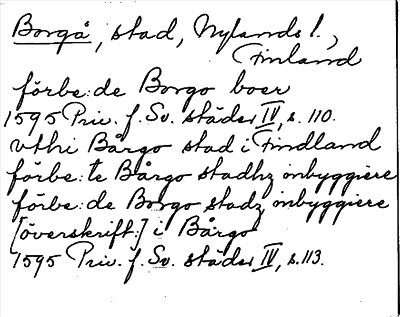 Borgå, stad, Nylands l.,
Finland
förbe:de Borgo boer
1595 Priv. f. Sv. städer IV, s. 110.
vthi Bårgo stad i Findland
förbe: te Bårgo stadhz inbyggiere
förbe: de Borgo stadz inbyggiere
[överskrift:] i Bårgo
1595 Priv. f. Sv. städer IV, s. 113.